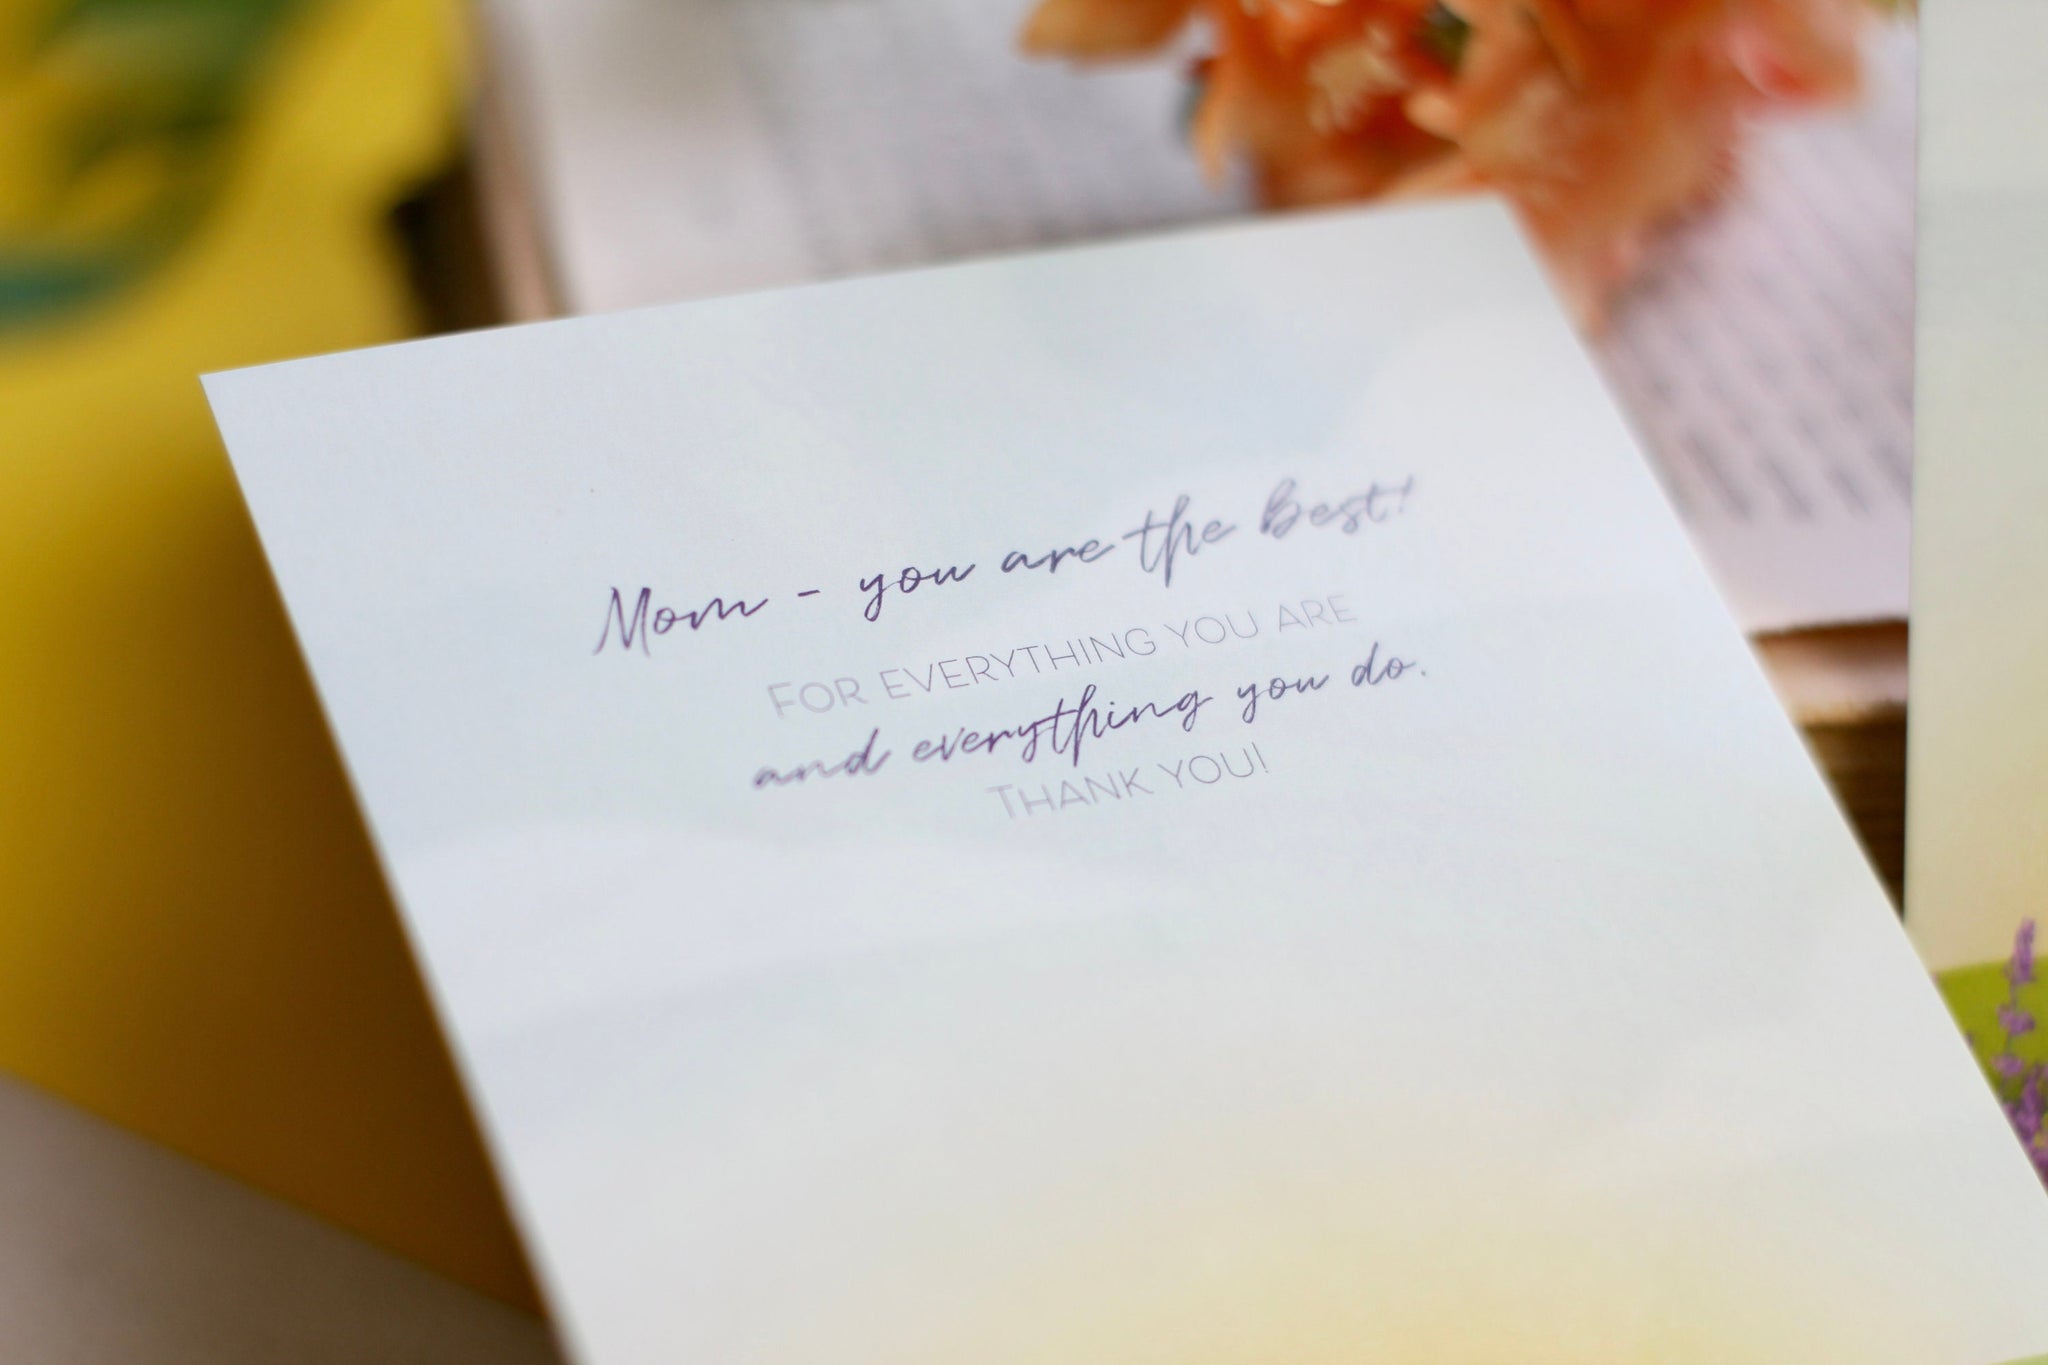 Mom - you are the Best!
FOR EVERYTHING YOU ARE
and everything you do.
THANK YOU!